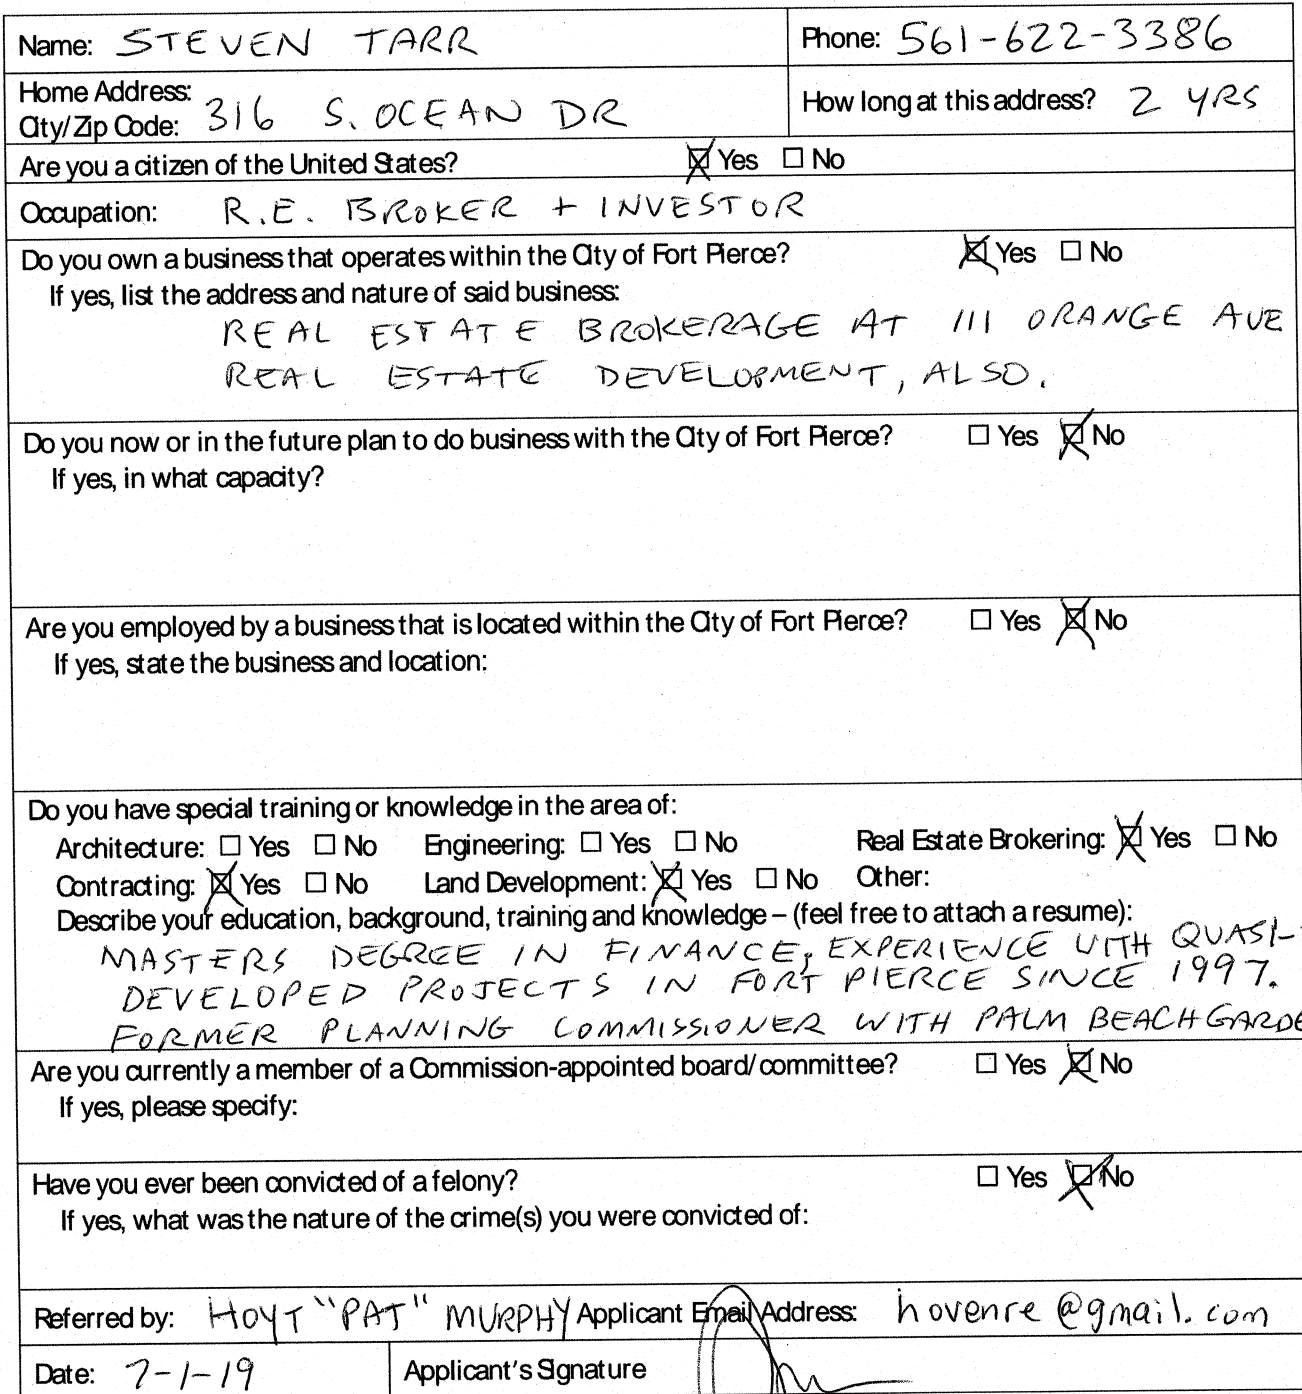 Name: STEVEN TARR Phone: 561-622-3386
Home Address:
City/Zip Code: 316 S. OCEAN DR How long at this address? 2 YRS
Are you a citizen of the United States? ☒ Yes ☐ No
Occupation: R.E. BROKER + INVESTOR
Do you own a business that operates within the City of Fort Pierce? ☒ Yes ☐ No
If yes, list the address and nature of said business:
REAL ESTATE BROKERAGE AT 111 ORANGE AVE
REAL ESTATE DEVELOPMENT, ALSO.
Do you now or in the future plan to do business with the City of Fort Pierce? ☐ Yes ☒ No
If yes, in what capacity?
Are you employed by a business that is located within the City of Fort Pierce? ☐ Yes ☒ No
If yes, state the business and location:
Do you have special training or knowledge in the area of:
Architecture: ☐ Yes ☐ No Engineering: ☐ Yes ☐ No Real Estate Brokering: ☒ Yes ☐ No
Contracting: ☒ Yes ☐ No Land Development: ☒ Yes ☐ No Other:
Describe your education, background, training and knowledge – (feel free to attach a resume):
MASTERS DEGREE IN FINANCE, EXPERIENCE WITH QUASI-
DEVELOPED PROJECTS IN FORT PIERCE SINCE 1997.
FORMER PLANNING COMMISSIONER WITH PALM BEACH GARDE
Are you currently a member of a Commission-appointed board/committee? ☐ Yes ☒ No
If yes, please specify:
Have you ever been convicted of a felony? ☐ Yes ☒ No
If yes, what was the nature of the crime(s) you were convicted of:
Referred by: HOYT "PAT" MURPHY Applicant Email Address: hovenre@gmail.com
Date: 7-1-19 Applicant's Signature